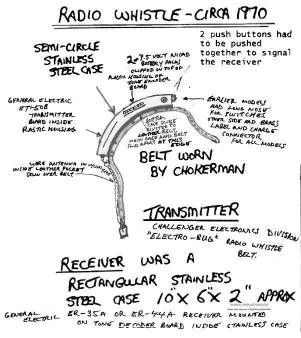 RADIO WHISTLE - CIRCA 1970
2 push buttons had
to be pushed
together to signal
the receiver
SEMI-CIRCLE
STAINLESS
STEEL CASE
2-7.5 VOLT NICAD
BATTERY PACKS
CLIPPED ON TOP OF
PLASTIC HOUSING OF
TONE ENCODER
BOARD
GENERAL ELECTRIC
TRANSMITTER
BOARD INSIDE
PLASTIC HOUSING
EARLIER MODELS
HAD LONG NOSE
FOR SWITCHES
OTHER SIDE AND BRASS
LABEL AND CHARGE
CONNECTOR
FOR ALL MODELS
LEATHER BELT.
EDGE
WIRE ANTENNA IN
INSIDE LEATHER POCKET
SEWN OVER BELT
BELT WORN
BY CHOKERMAN
TRANSMITTER
CHALLENGER ELECTRONICS DIVISION
"ELECTRO-BUG" RADIO WHISTLE
BELT.
RECEIVER WAS A
RECTANGULAR STAINLESS
STEEL CASE 10" X 6" X 2" APPROX
GENERAL ELECTRIC ER-35A OR ER-44A RECEIVER MOUNTED
ON TONE DECODER BOARD INSIDE STAINLESS CASE